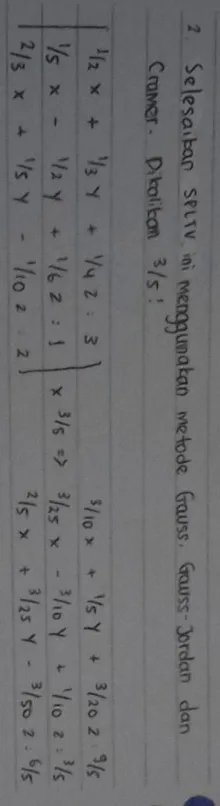 2. Selesaikan SPLTV ini menggunakan metode Gauss, Gauss-Jordan dan
Cramer. Dikalikan 3/5!
1/2 x + 1/3 y + 1/4 z = 3 3/10 x + 1/5 y + 3/20 z = 9/5
1/5 x - 1/2 y + 1/6 z = 1 x 3/5 => 3/25 x - 3/10 y + 1/10 z = 3/5
2/3 x + 1/5 y - 1/10 z = 2 2/5 x + 3/25 y - 3/50 z = 6/5